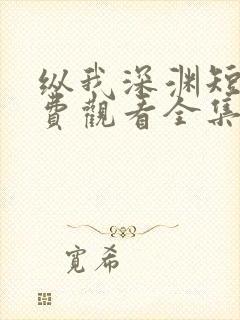 纵我深渊短
费觀看全集
寬希